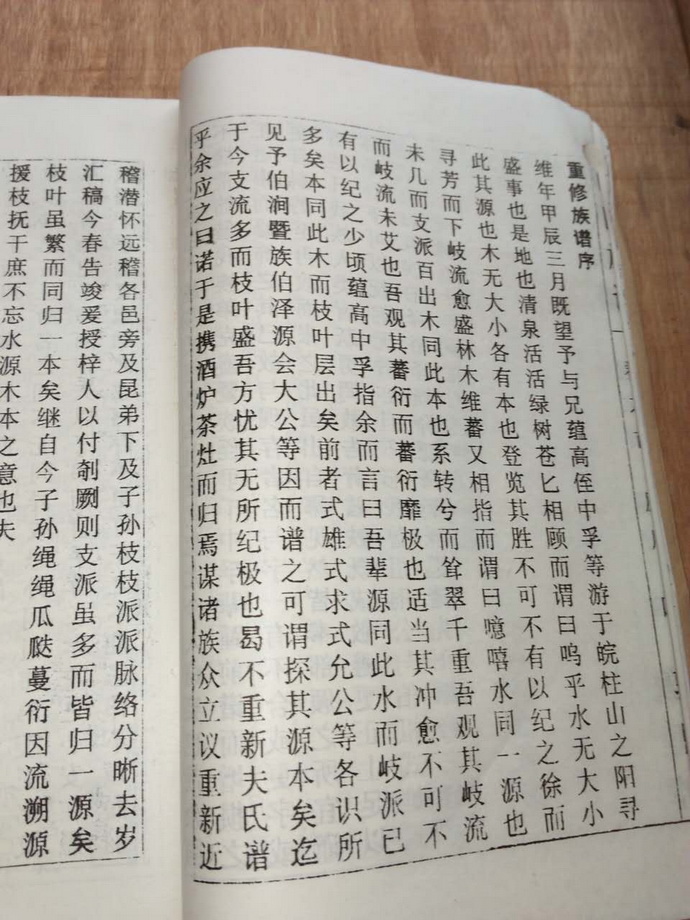 重修族谱序
维年甲辰三月既望予与兄蕴高侄中孚等游于皖柱山之阳寻
盛事也是地也清泉活活绿树苍匕相顾而谓曰呜乎水无大小
此其源也木无大小各有本也登览其胜不可不有以纪之徐而
寻芳而下岐流愈盛林木维蕃又相指而谓曰噫嘻水同一源也
未几而支派百出木同此本也系转兮而耸翠千重吾观其岐流
而岐流未艾也吾观其蕃衍而蕃衍靡极也适当其冲愈不可不
有以纪之少顷蕴高中孚指余而言曰吾辈源同此水而岐派已
多矣本同此木而枝叶层出矣前者式雄式求式允公等各识所
见予伯涧暨族伯泽源会大公等因而谱之可谓探其源本矣迄
于今支流多而枝叶盛吾方忧其无所纪极也曷不重新夫氏谱
乎余应之曰诺于是携酒炉茶灶而归焉谋诸族众立议重新近
稽潜怀远稽各邑旁及昆弟下及子孙枝枝派派脉络分晰去岁
汇稿今春告竣爰授梓人以付剞劂则支派虽多而皆归一源矣
枝叶虽繁而同归一本矣继自今子孙绳绳瓜瓞蔓衍因流溯源
援枝抚干庶不忘水源木本之意也夫